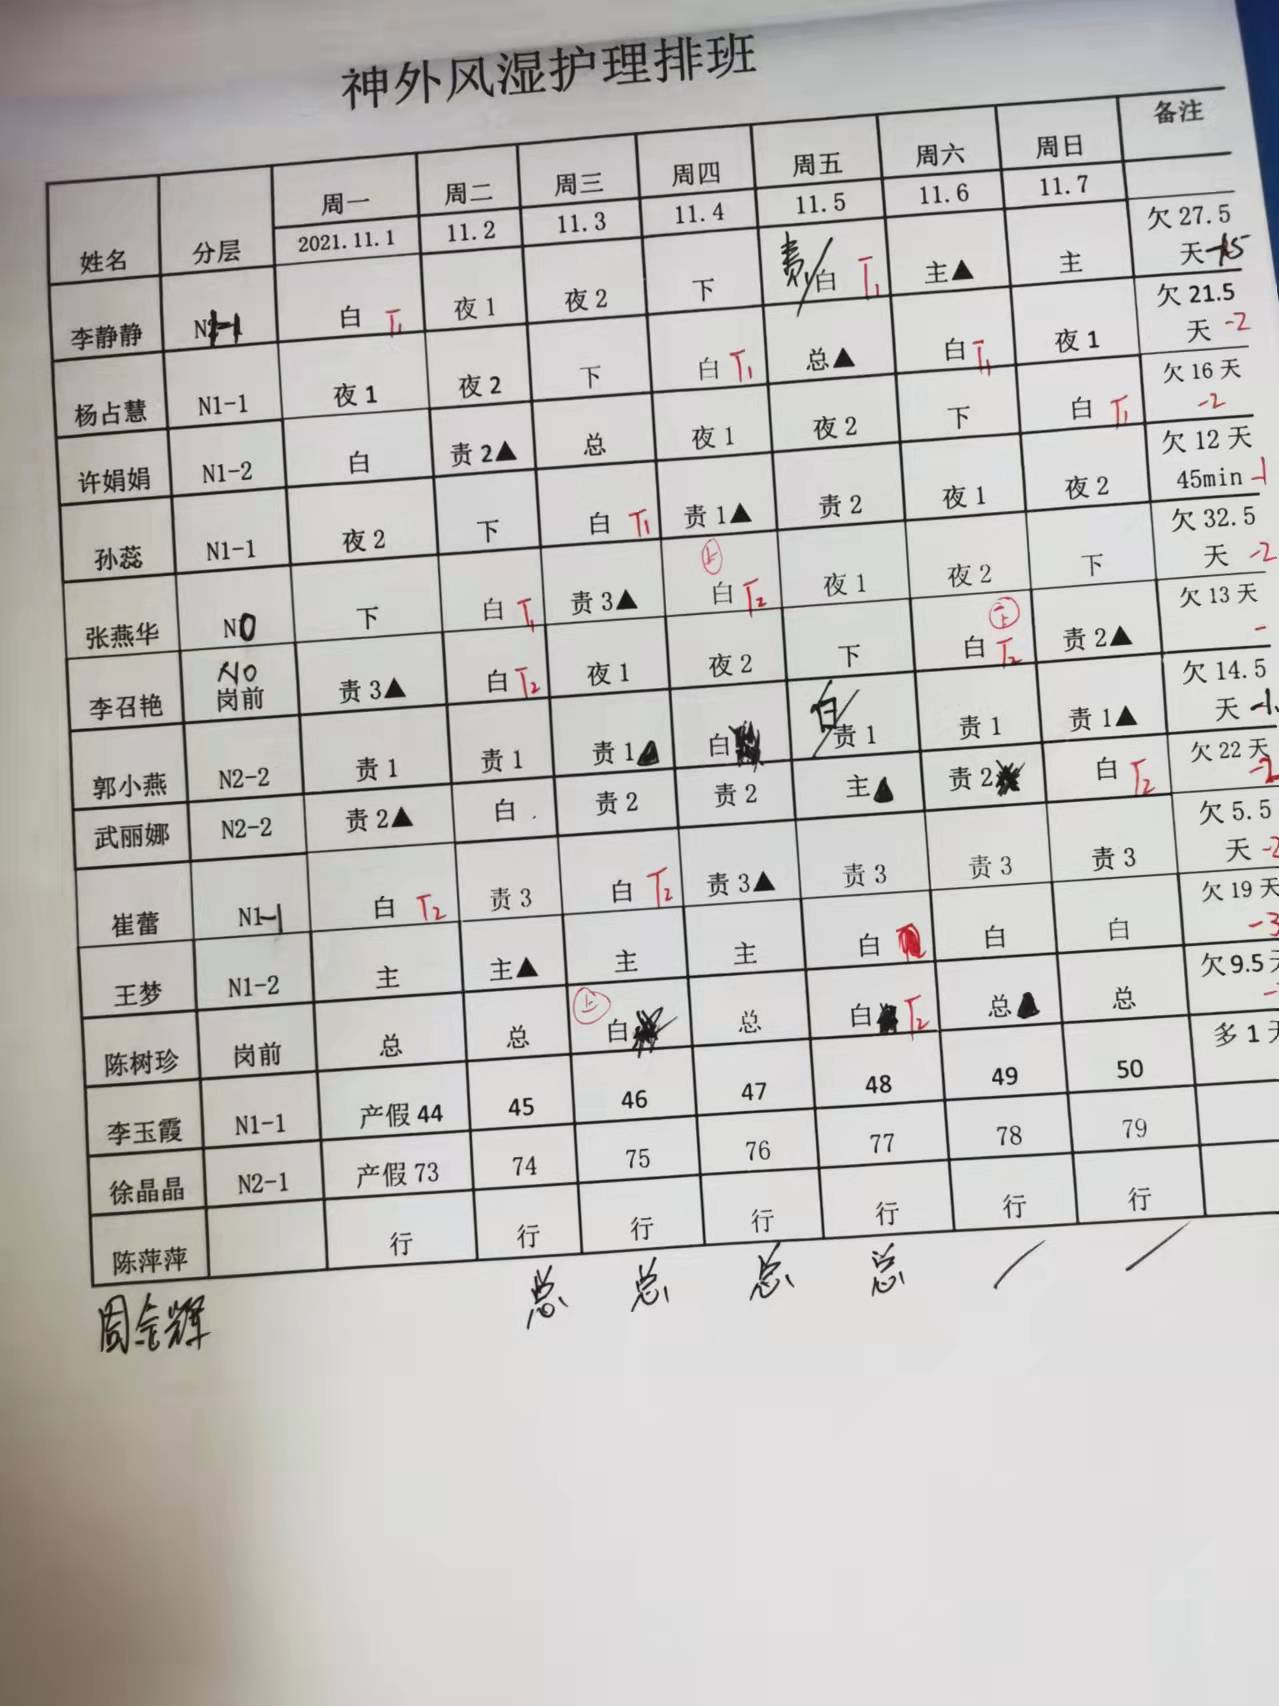 神外风湿护理排班
姓名 分层 周一 周二 周三 周四 周五 周六 周日 备注
2021.11.1 11.2 11.3 11.4 11.5 11.6 11.7
李静静 白 T1 夜1 夜2 下 责/白 T1 主▲ 主 欠27.5天
杨占慧 N1-1 夜1 夜2 下 白 T1 总▲ 白 T1 夜1 欠21.5天 -2
许娟娟 N1-2 白 责2▲ 总 夜1 夜2 下 白 T1 欠16天 -2
孙蕊 N1-1 夜2 下 白 T1 责1▲ 责2 夜1 夜2 欠12天45min -1
张燕华 N0 下 白 T1 责3▲ 上 白 T2 夜1 夜2 下 欠32.5天 -2
李召艳 N0 岗前 责3▲ 白 T2 夜1 夜2 下 上 白 T2 责2▲ 欠13天 -
郭小燕 N2-2 责1 责1 责1▲ 白 白/责1 责1 责1▲ 欠14.5天
武丽娜 N2-2 责2▲ 白 责2 责2 主▲ 责2 白 T2 欠22天 -2
崔蕾 N1-1 白 T2 责3 白 T2 责3▲ 责3 责3 责3 欠5.5天 -2
王梦 N1-2 主 主▲ 主 主 白 白 白 欠19天 -3
陈树珍 岗前 总 总 上 白 总 白 T2 总▲ 总 欠9.5天 -
李玉霞 N1-1 产假44 45 46 47 48 49 50 多1天
徐晶晶 N2-1 产假73 74 75 76 77 78 79
陈萍萍 行 行 行 行 行 行 行
周金辉 总 总 总 总 / /